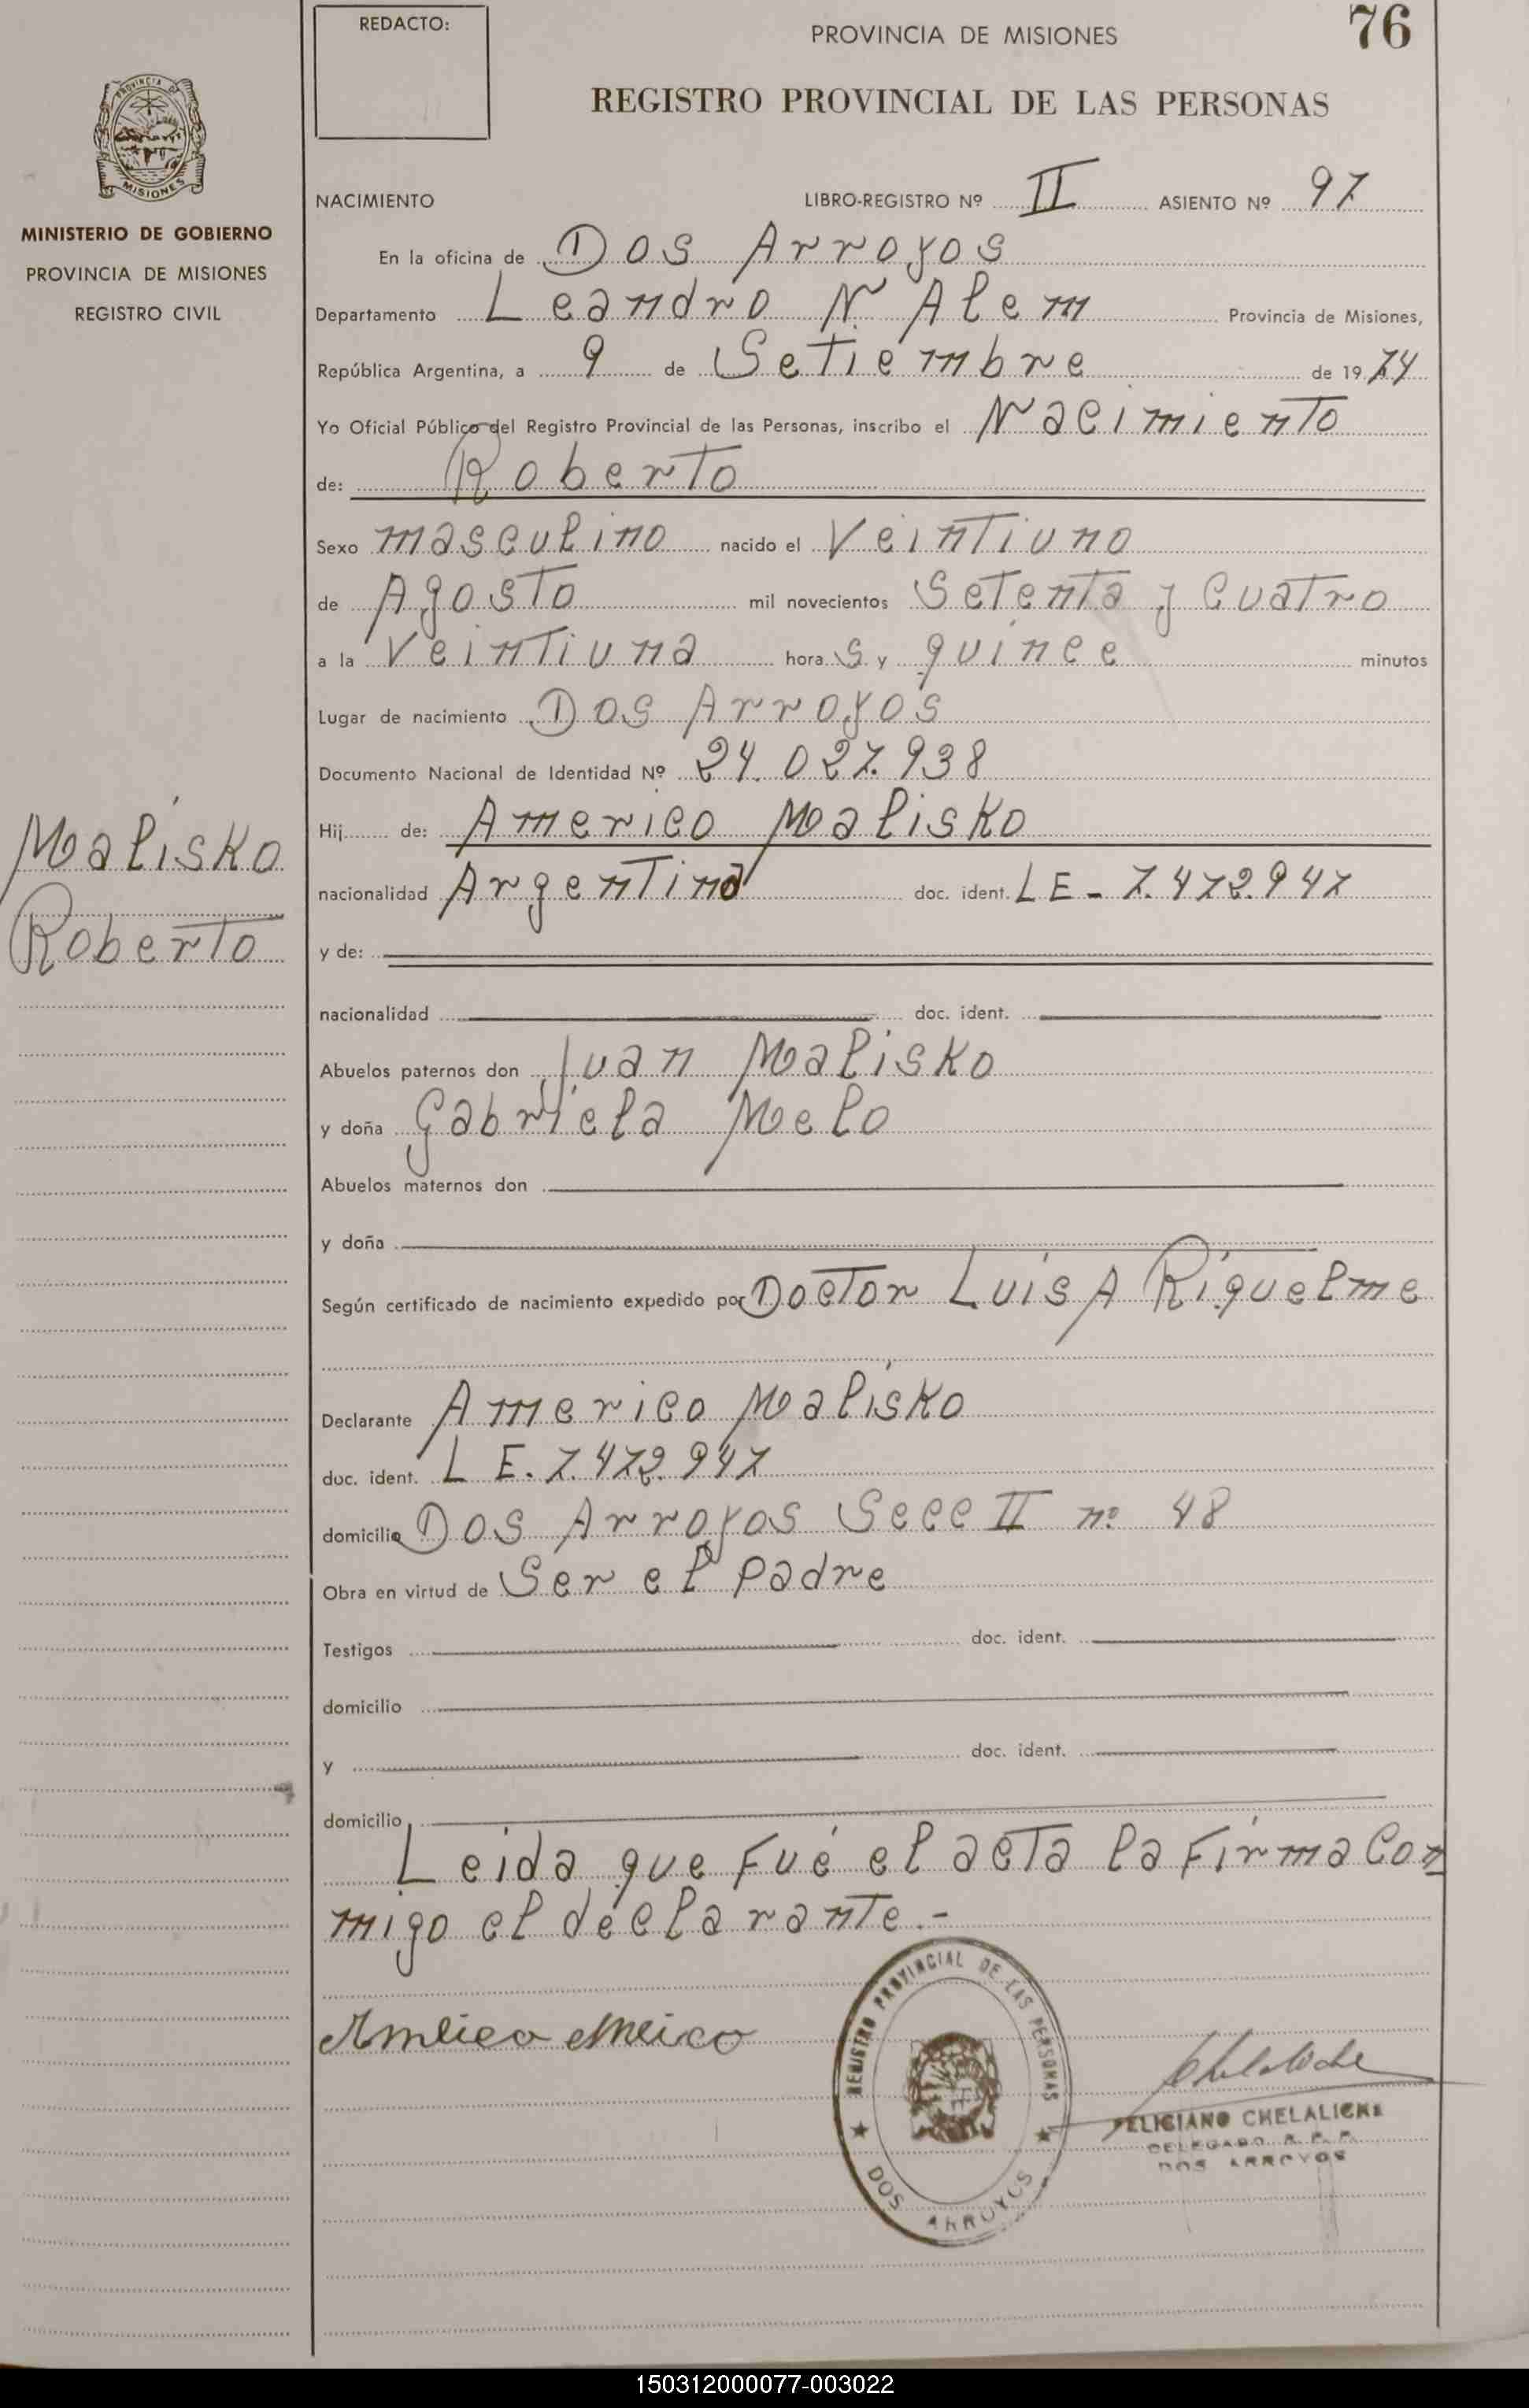 REDACTO:
PROVINCIA DE MISIONES
76
REGISTRO PROVINCIAL DE LAS PERSONAS
PROVINCIA DE
MISIONES
MINISTERIO DE GOBIERNO
PROVINCIA DE MISIONES
REGISTRO CIVIL
NACIMIENTO LIBRO-REGISTRO Nº II ASIENTO Nº 97
En la oficina de Dos Arroyos
Departamento Leandro N. Alem Provincia de Misiones,
República Argentina, a 9 de Setiembre de 1974
Yo Oficial Público del Registro Provincial de las Personas, inscribo el Nacimiento
de: Roberto
Sexo masculino nacido el Veintiuno
de Agosto mil novecientos Setenta y Cuatro
a la Veintiuna hora s y quince minutos
Lugar de nacimiento Dos Arroyos
Documento Nacional de Identidad Nº 24.027.938
Hij de: Americo Malisko
Malisko
Roberto
nacionalidad Argentina doc. ident. LE - 7.472.947
y de:
nacionalidad doc. ident.
Abuelos paternos don Juan Malisko
y doña Gabriela Melo
Abuelos maternos don
y doña
Según certificado de nacimiento expedido por Doctor Luis A Riquelme
Declarante Americo Malisko
doc. ident. L E. 7.472.947
domicilio Dos Arroyos Secc II nº 48
Obra en virtud de Ser el padre
Testigos doc. ident.
domicilio
y doc. ident.
domicilio
Leida que fué el acta la firma Con
migo el declarante.-
REGISTRO PROVINCIAL DE LAS PERSONAS
DOS ARROYOS
FELICIANO CHELALICHE
DELEGADO R. P. P.
DOS ARROYOS
150312000077-003022